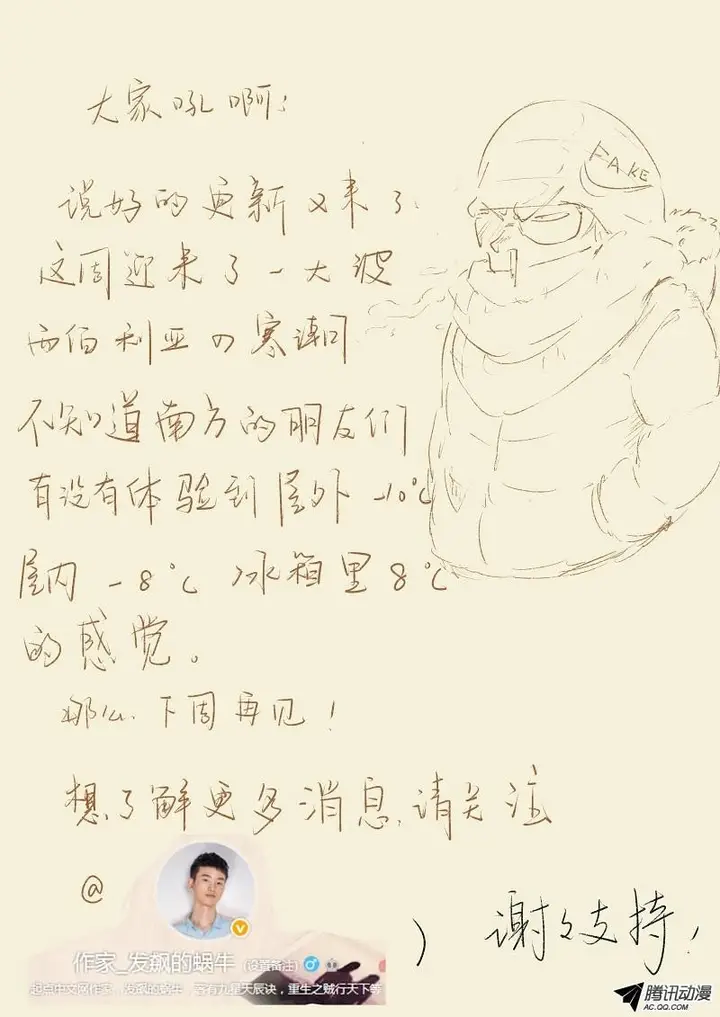 大家吼啊!
FAKE
说好的更新又来了
这周迎来了一大波
西伯利亚の寒潮
不知道南方的朋友们
有没有体验到屋外-10℃
屋内-8℃ 冰箱里8℃
的感觉。
那么.下周再见!
想了解更多消息,请关注
@
作家_发飙的蜗牛 (设置备注)
起点中文网作家,发飙的蜗牛,著有九星天辰诀,重生之贼行天下等
) 谢々支持!
腾讯动漫
AC.QQ.COM